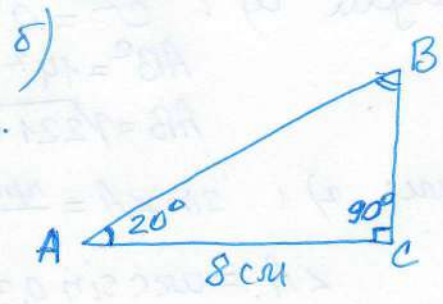 б)
B
A 20° 90° C
8 см